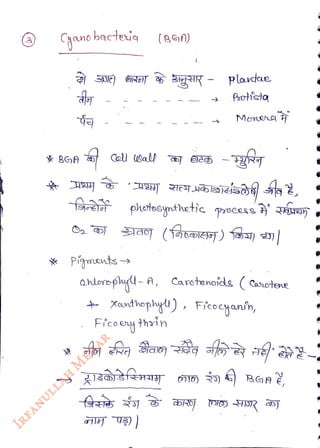 ③ Cyanobacteria (BGA)
दो जगत धारणा के अनुसार - plantae
तीन - - - - - - - → Protista
पंच - - - - - - - → Monera में
* BGA की Cell wall का घटक - म्यूरिन
* प्रथम के 'प्रथम सत्य प्रकाशसंश्लेषी जीव है,
जिन्होंने photosynthetic process में सर्वप्रथम
O₂ का (निष्कासन) किया था।
* Pigments →
chlorophyll-A, Carotenoids (Carotene
+ Xanthophyll), Ficocyanin,
Ficoerythrin
* नील हरित शैवाल सदैव नीले हरे नहीं होते है-
→ ट्राइकोडेस्मियम लाल रंग की BGA है,
जिसके रंग के कारण लाल सागर का
नाम पड़ा।
IRFANULLAH